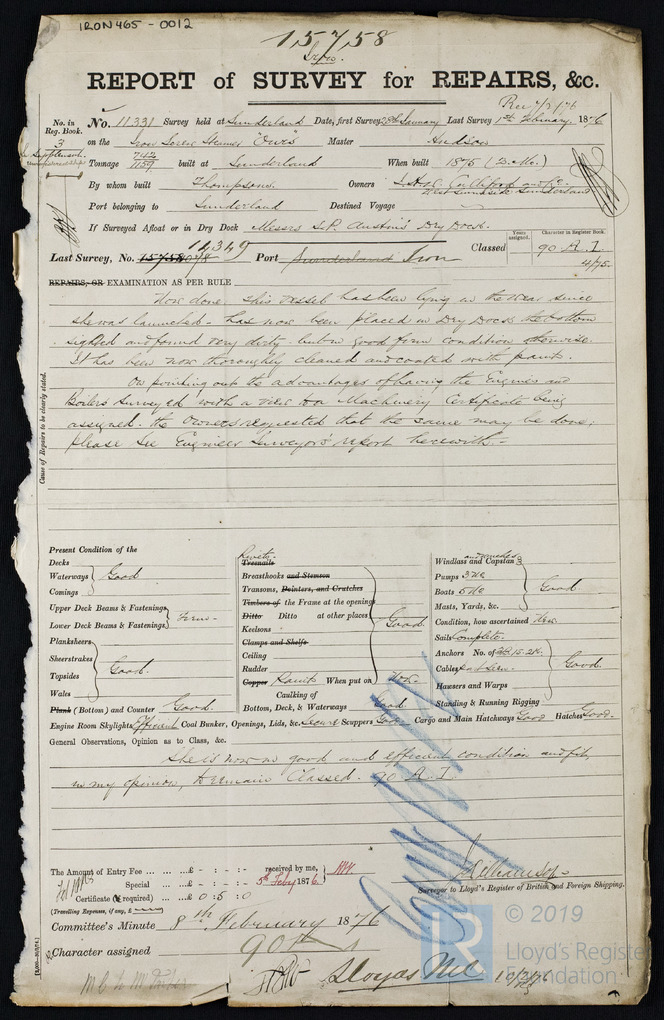 IRON 465 - 0012
15758
REPORT of SURVEY for REPAIRS, &c.
Rec 7/2/76
No. in Reg. Book. No. 11331 Survey held at Sunderland Date, first Survey 28th January Last Survey 1st February 1876
3 on the Iron Screw Steamer "Ovis" Master
in Supplement. Tonnage 742 1159 built at Sunderland When built 1875 (2.Mo.)
By whom built Thompson. Owners
Sunderland
Port belonging to Sunderland Destined Voyage
If Surveyed Afloat or in Dry Dock Messrs S.P. Austin's Dry Dock.
Years assigned. Character in Register Book.
Last Survey, No. 15758 14349 Port Sunderland Iron Classed 90 A.1.
4/75.
REPAIRS, OR EXAMINATION AS PER RULE
Cause of Repairs to be clearly stated.
Now done. This vessel has been lying in the Wear since
she was launched - has now been placed in Dry Dock the bottom
sighted and found very dirty - but in good form condition otherwise.
It has been now thoroughly cleaned and coated with paint.
On pointing out the advantages of having the Engines and
Boilers surveyed with a view to a Machinery Certificate being
assigned. the Owners requested that the same may be done,
please see Engineer Surveyors' report herewith. -
Present Condition of the
Decks
Waterways Good
Comings
Upper Deck Beams & Fastenings
Lower Deck Beams & Fastenings
Planksheers
Sheerstrakes
Topsides Good.
Wales
Plank (Bottom) and Counter Good.
Rivets.
Treenails
Breasthooks and Stemson
Transoms, Pointers, and Crutches
Timbers of the Frame at the openings
Ditto Ditto at other places Good
Keelsons
Clamps and Shelfs
Ceiling
Rudder
Copper Paint When put on Now.
Caulking of
Bottom, Deck, & Waterways Good
Windlass and Capstan and winches
Pumps 3 No
Boats 5 No Good
Masts, Yards, &c.
Condition, how ascertained New
Sails Complete.
Anchors No. of
Cables Good.
Hawsers and Warps
Standing & Running Rigging
Engine Room Skylights Efficient Coal Bunker, Openings, Lids, &c. Secure Scuppers Good Cargo and Main Hatchways Good Hatches Good.
General Observations, Opinion as to Class, &c.
She is now in good and efficient condition and fit,
in my opinion, to remain Classed. 90 A.1.
The Amount of Entry Fee ... ... £ - : - : - received by me,
Special ... ... £ - : - : - 5th Feby 1876.
Certificate (if required) ... £ 0 : 5 : 0
(Travelling Expenses, if any, £
Surveyor to Lloyd's Register of British and Foreign Shipping.
Committee's Minute 8th February 1876
Character assigned 90 A 1
Lloyds MC 10/2/76
© 2019
Lloyd's Register
Foundation